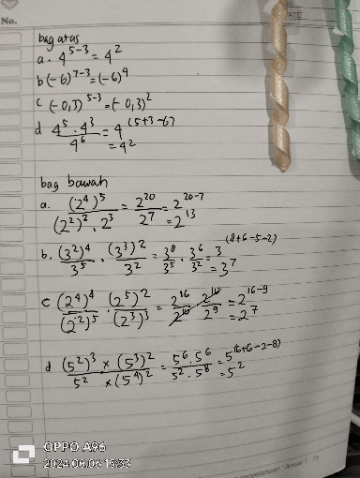 No.
bag atas
a. 4^(5-3) = 4^2
b (-6)^(7-3) = (-6)^4
c (-0,3)^(5-3) = (-0,3)^2
d (4^5 . 4^3)/4^6 = 4^(5+3-6)
= 4^2
bag bawah
a. (2^4)^5/((2^2)^2 . 2^3) = 2^20/2^7 = 2^(20-7)
= 2^13
b. (3^2)^4/3^5 . (3^3)^2/3^2 = 3^8/3^5 . 3^6/3^2 = 3^(8+6-5-2)
= 3^7
c (2^4)^4/(2^2)^5 . (2^5)^2/(2^3)^3 = 2^16/2^10 . 2^10/2^9 = 2^(16-9)
= 2^7
d ((5^2)^3 × (5^3)^2)/(5^2 × (5^4)^2) = (5^6 . 5^6)/(5^2 . 5^8) = 5^(6+6-2-8)
= 5^2
OPPO A96